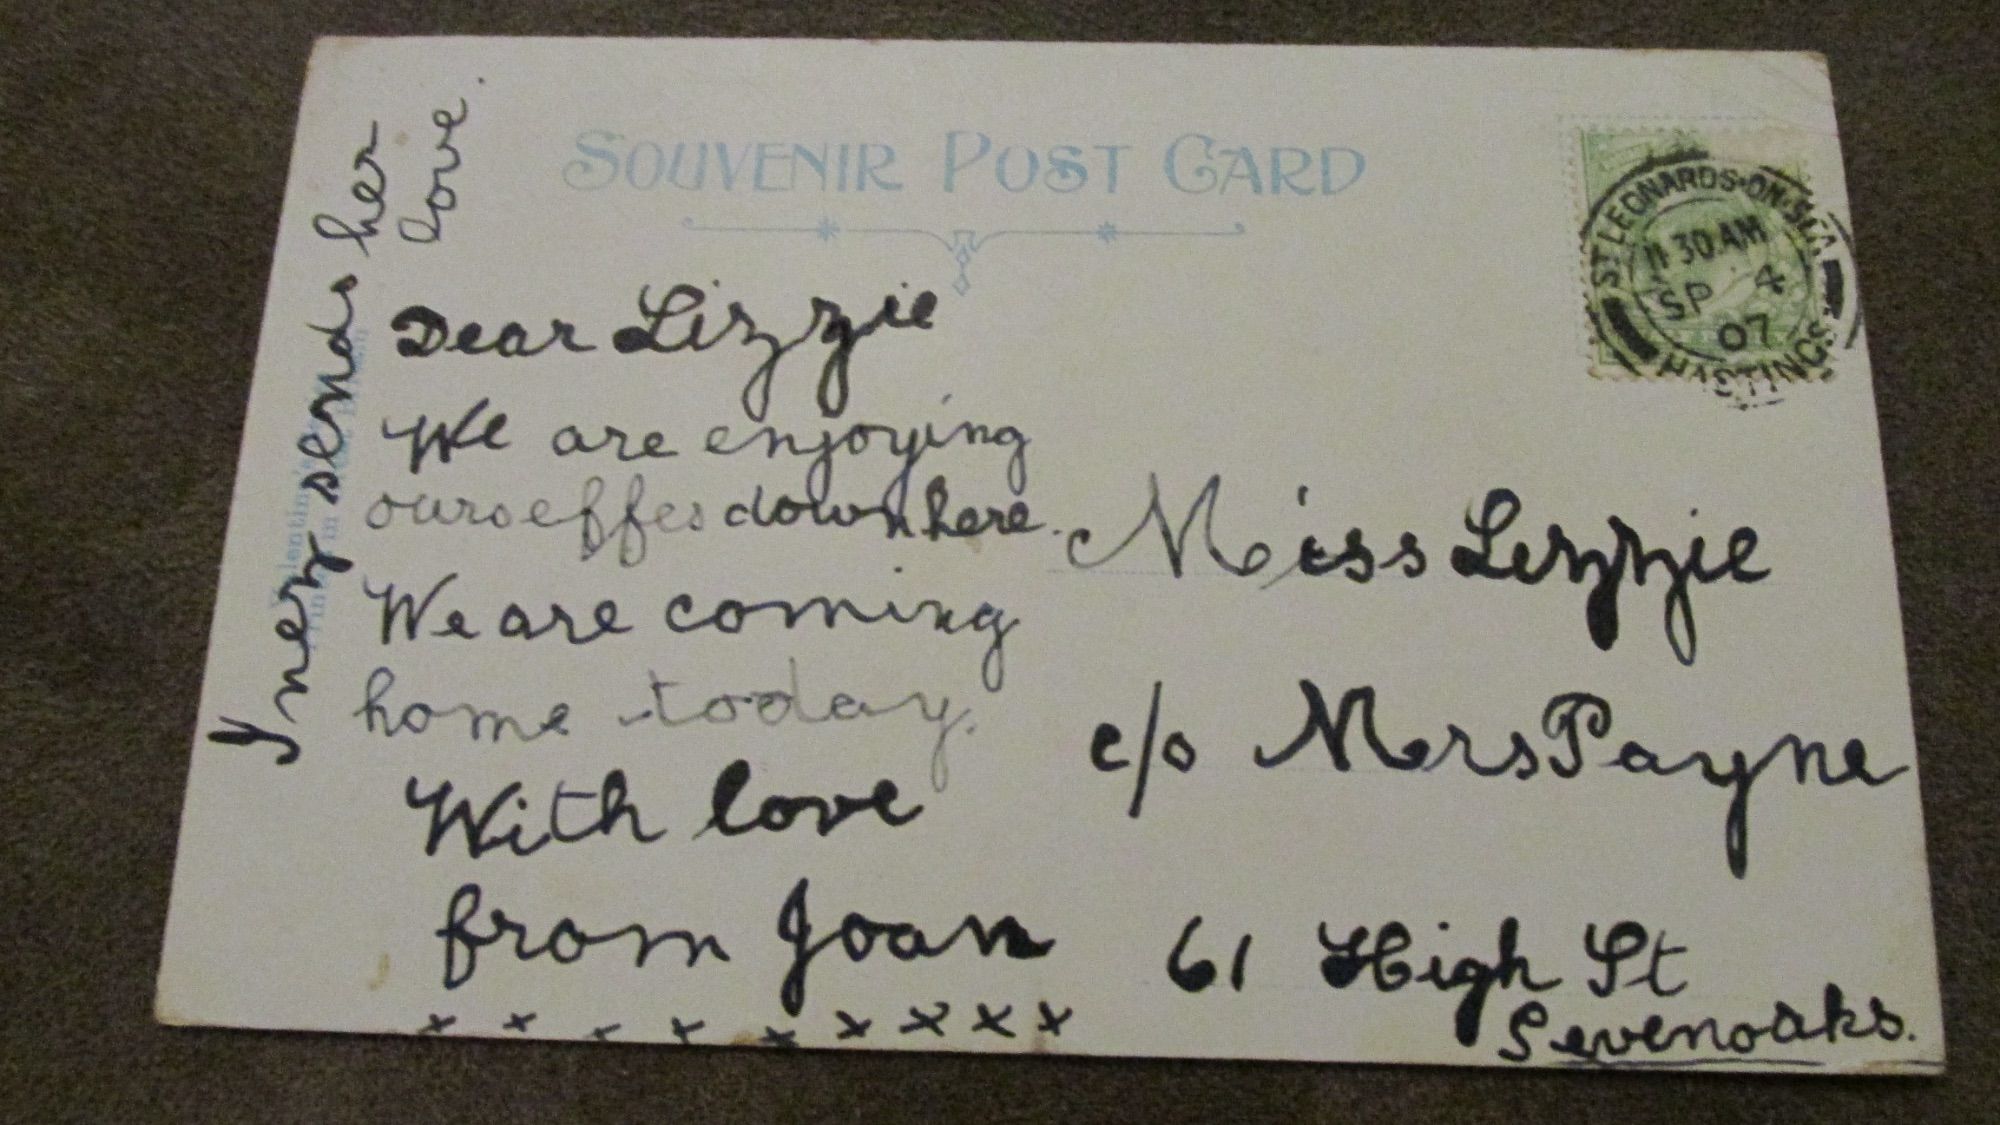 SOUVENIR POST CARD
ST LEONARDS-ON-SEA
11 30 AM
SP 4
07
HASTINGS
Ynez sends her
love.
Dear Lizzie
We are enjoying
ourseffes down here.
We are coming
home today.
With love
from Joan
x x x x x x x x x
Miss Lizzie
c/o Mrs Payne
61 High St
Sevenoaks.